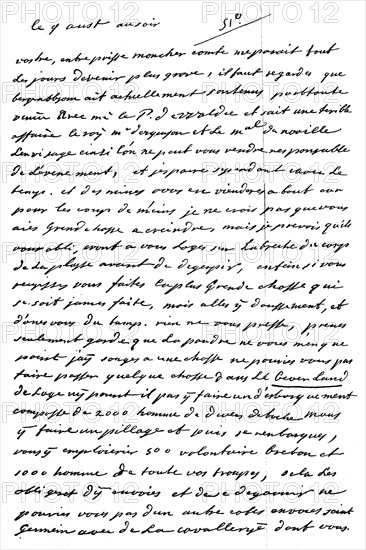 le 9 aust au soir 51º
vostre, entreprisse mon cher comte me paroit tout
les jours devenir plus grave; il faut regarder que
bergopsom ait actuellement soutenus par toute
venir avec mr le P. de valdec et sait une terible
affaire le roy mr d'argenson et le mal de noaille
l'envisage ainsi l'on ne peut vous rendre responsable
de l'evenement, et j'espere cependant avec le
temps. et des mines vous en viendres a bout car
pour les coups de mains je ne crois pas que vous
aiés Grande chosse a creindre, mais je prevois quils
vous obligeront a vous loger sur la breche du corps
de la plasse avant de degerpir, enfein si vous
reussisses vous faites la plus Grende chosse qui
se soit james faite, mais alles y doussement, et
donnes vous du temps. rien ne vous presse, prenes
seulement garde que la poudre ne vous menq ne
point jay songes a une chosse ne pouries vous pas
faire passer quelque chosse dans le Cevenland
de Loge ny pouroit il pas y faire un desbarquement
composse de 2000 homme de dives debuche mans
y faire un pillage et puis se renbarques,
vous y employeries 500 volontaire breton et
1000 homme de toute vos troupes, cela les
obligret dy envoies et de se degarnir ne
pouries vous pas d'un autre cotes envoies saint
Germein avec de la cavallerye dont vous.
PHOTO12